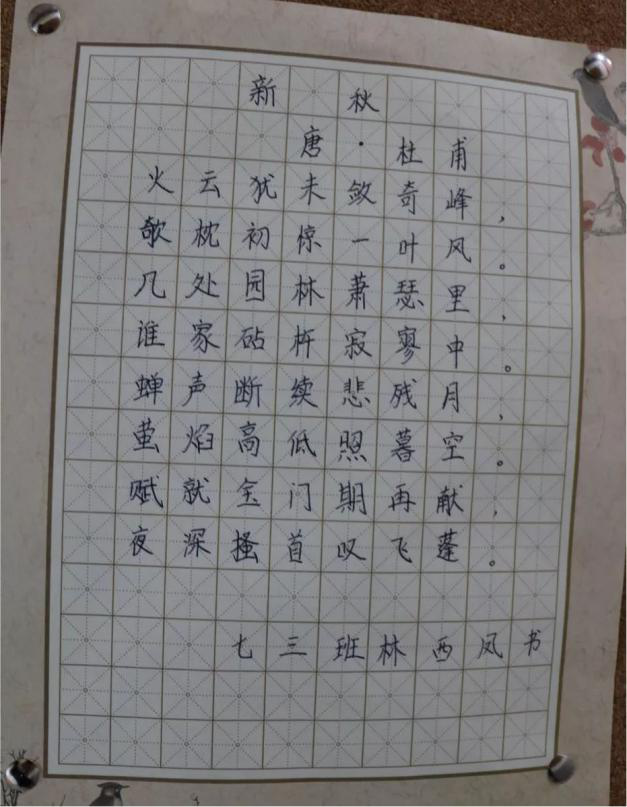 新秋
唐·杜甫
火云犹未敛奇峰，
欹枕初惊一叶风。
几处园林萧瑟里，
谁家砧杵寂寥中。
蝉声断续悲残月，
萤焰高低照暮空。
赋就金门期再献，
夜深搔首叹飞蓬。
七三班林西凤书